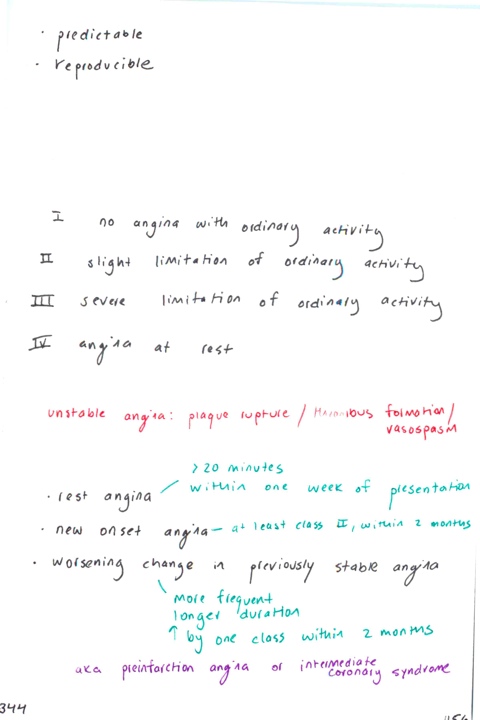 · predictable
· reproducible
I no angina with ordinary activity
II slight limitation of ordinary activity
III severe limitation of ordinary activity
IV angina at rest
unstable angina: plaque rupture / thrombus formation /
vasospasm
> 20 minutes
· rest angina within one week of presentation
· new onset angina — at least class II, within 2 months
· worsening change in previously stable angina
more frequent
longer duration
↑ by one class within 2 months
aka preinfarction angina or intermediate
coronary syndrome
344